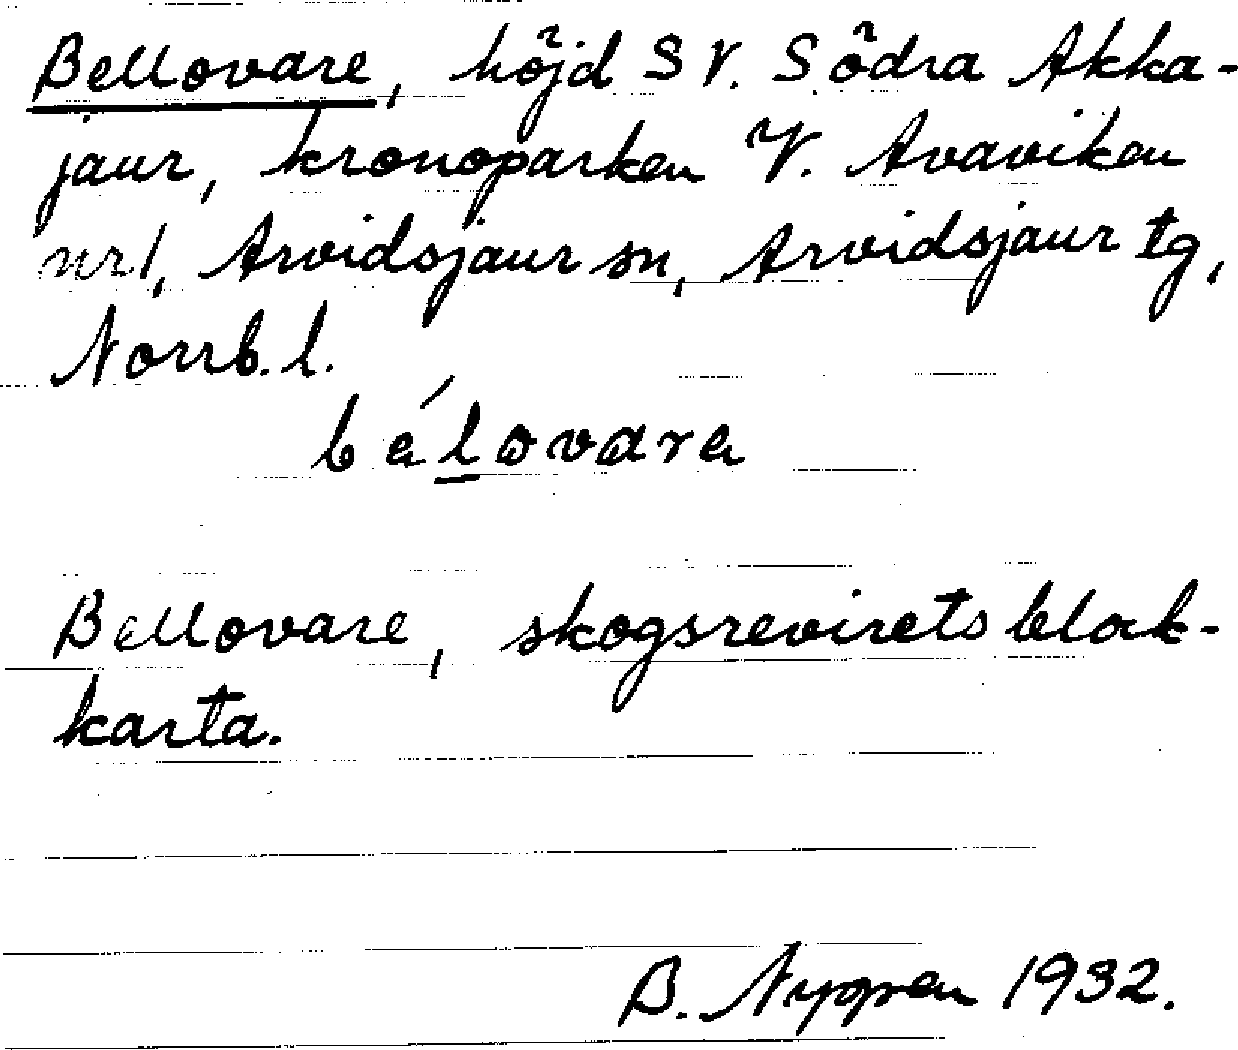 Bellovare, höjd SV. Södra Akka-
jaur, kronoparken V. Avaviken
nr 1, Arvidsjaur sn, Arvidsjaur tg,
Norrb. l.
bélovara
Bellovare, skogsrevirets block-
karta.
B. Nygren 1932.